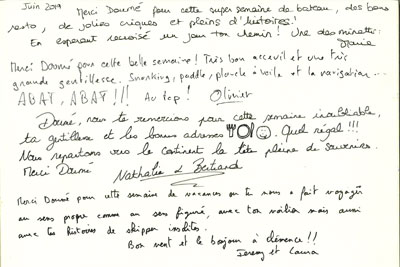 Juin 2019
Merci Doumé pour cette super semaine de bateau, des bons
resto, de jolies criques et pleins d'histoires!
En esperant recroisé un jour ton chemin! Une des minettes:
Marie
Merci Doumé pour cette belle semaine! Très bon accueil et une très
grande gentillesse. Snorkling, paddle, planche à voile et la navigation...
ABAT, ABAT!!! Au top! Olivier
Doumé, nous te remercions pour cette semaine inoubliable,
ta gentillesse et les bonnes adresses. Quel régal!!!
Nous repartons vers le continent la tête pleine de souvenirs.
Merci Doumé
Nathalie & Bertrand
Merci Doumé pour cette semaine de vacances où tu nous a fait voyager
au sens propre comme au sens figuré, avec ton voilier mais aussi
avec tes histoires de skipper insolites.
Bon vent et le bonjour à clémence!!
Jeremy et Laura